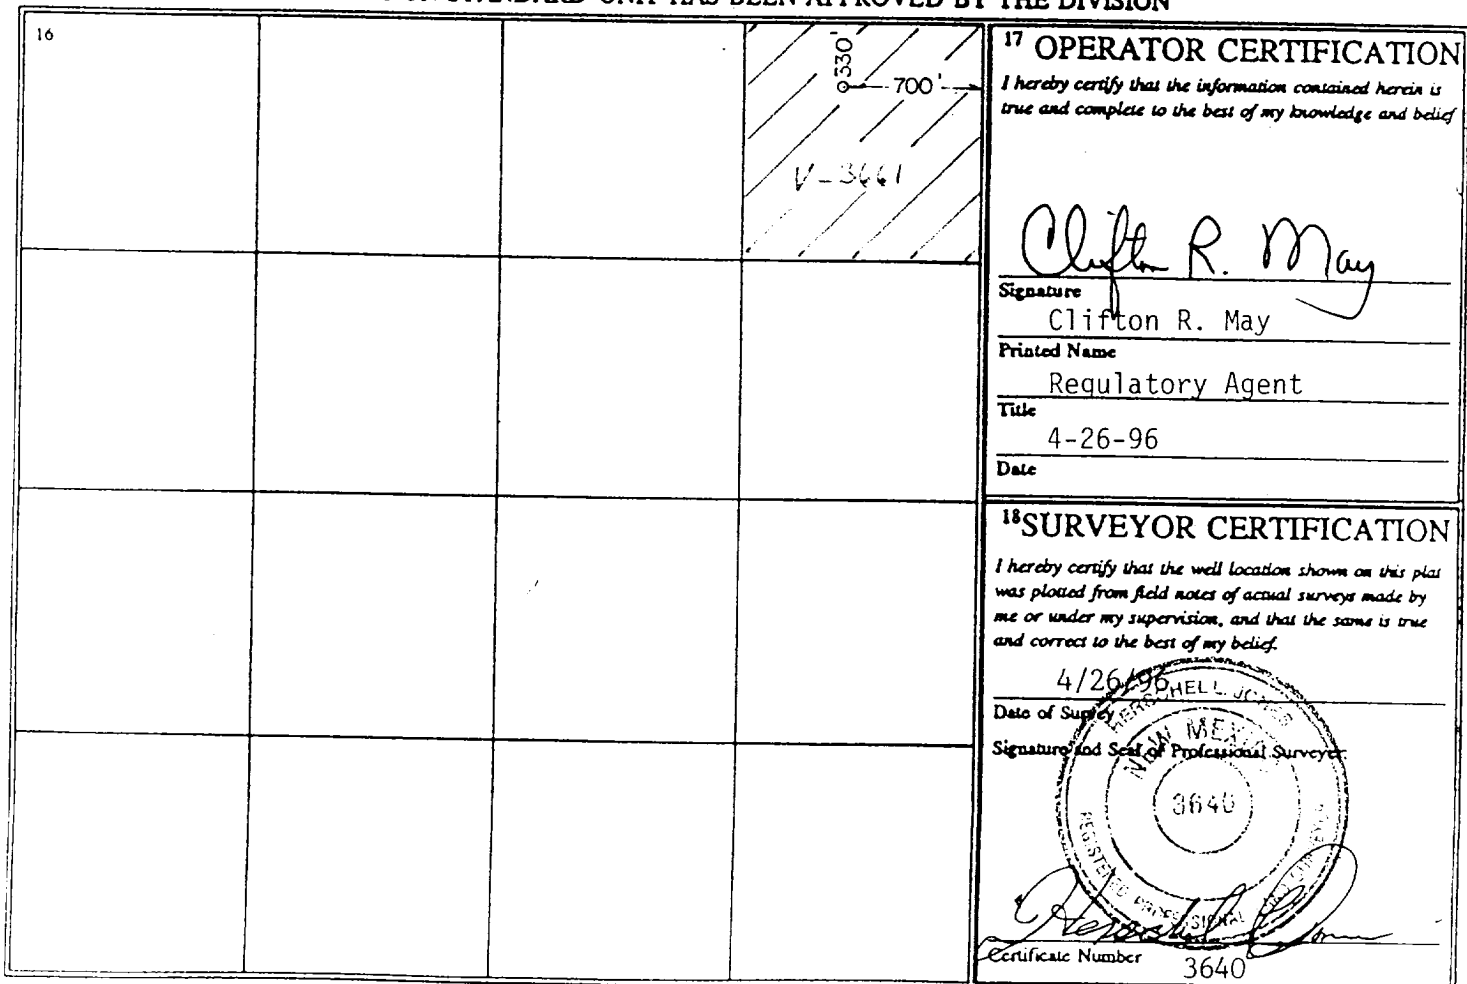 STANDARD UNIT HAS BEEN APPROVED BY THE DIVISION
16
330'
700'
V-3441
17 OPERATOR CERTIFICATION
I hereby certify that the information contained herein is
true and complete to the best of my knowledge and belief
Clifton R. May
Signature
Clifton R. May
Printed Name
Regulatory Agent
Title
4-26-96
Date
18 SURVEYOR CERTIFICATION
I hereby certify that the well location shown on this plat
was plotted from field notes of actual surveys made by
me or under my supervision, and that the same is true
and correct to the best of my belief.
4/26/96
Date of Survey
Signature and Seal of Professional Surveyer:
HERSCHEL L. JONES
NEW MEXICO
3640
REGISTERED PROFESSIONAL LAND SURVEYOR
Herschel Jones
Certificate Number
3640